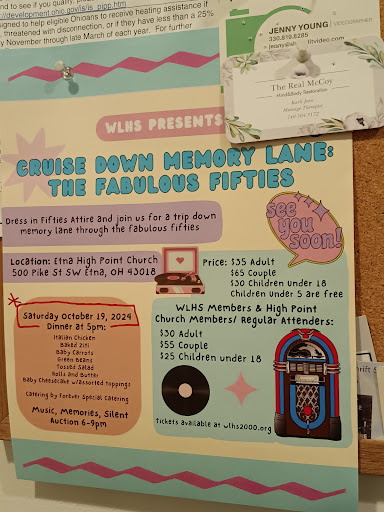 nd to see if you qualify, please
://development.ohio.gov/is/is_pipp.htm
signed to help eligible Ohioans to receive heating assistance if
, threatened with disconnection, or if they have less than a 25%
y November through late March of each year. For further
JENNY YOUNG | VIDEOGRAPHER
330.819.8285
jessny@sh litvideo.com
The Real McCoy
Mind&Body Restoration
Massage Therapist
WLHS PRESENTS
CRUISE DOWN MEMORY LANE:
THE FABULOUS FIFTIES
Dress in Fifties Attire and join us for a trip down
memory lane through the fabulous fifties
see
you
soon!
Location: Etna High Point Church
500 Pike St SW Etna, OH 43018
Price: $35 Adult
$65 Couple
$30 Children under 18
Children under 5 are free
Saturday October 19, 2024
Dinner at 5pm:
Italian Chicken
Baked Ziti
Baby Carrots
Green Beans
Tossed Salad
Rolls and Butter
Baby Cheesecake w/assorted toppings
Catering by Forever Special Catering
Music, Memories, Silent
Auction 6-9pm
WLHS Members & High Point
Church Members/ Regular Attenders:
$30 Adult
$55 Couple
$25 Children under 18
Tickets available at wlhs2000.org